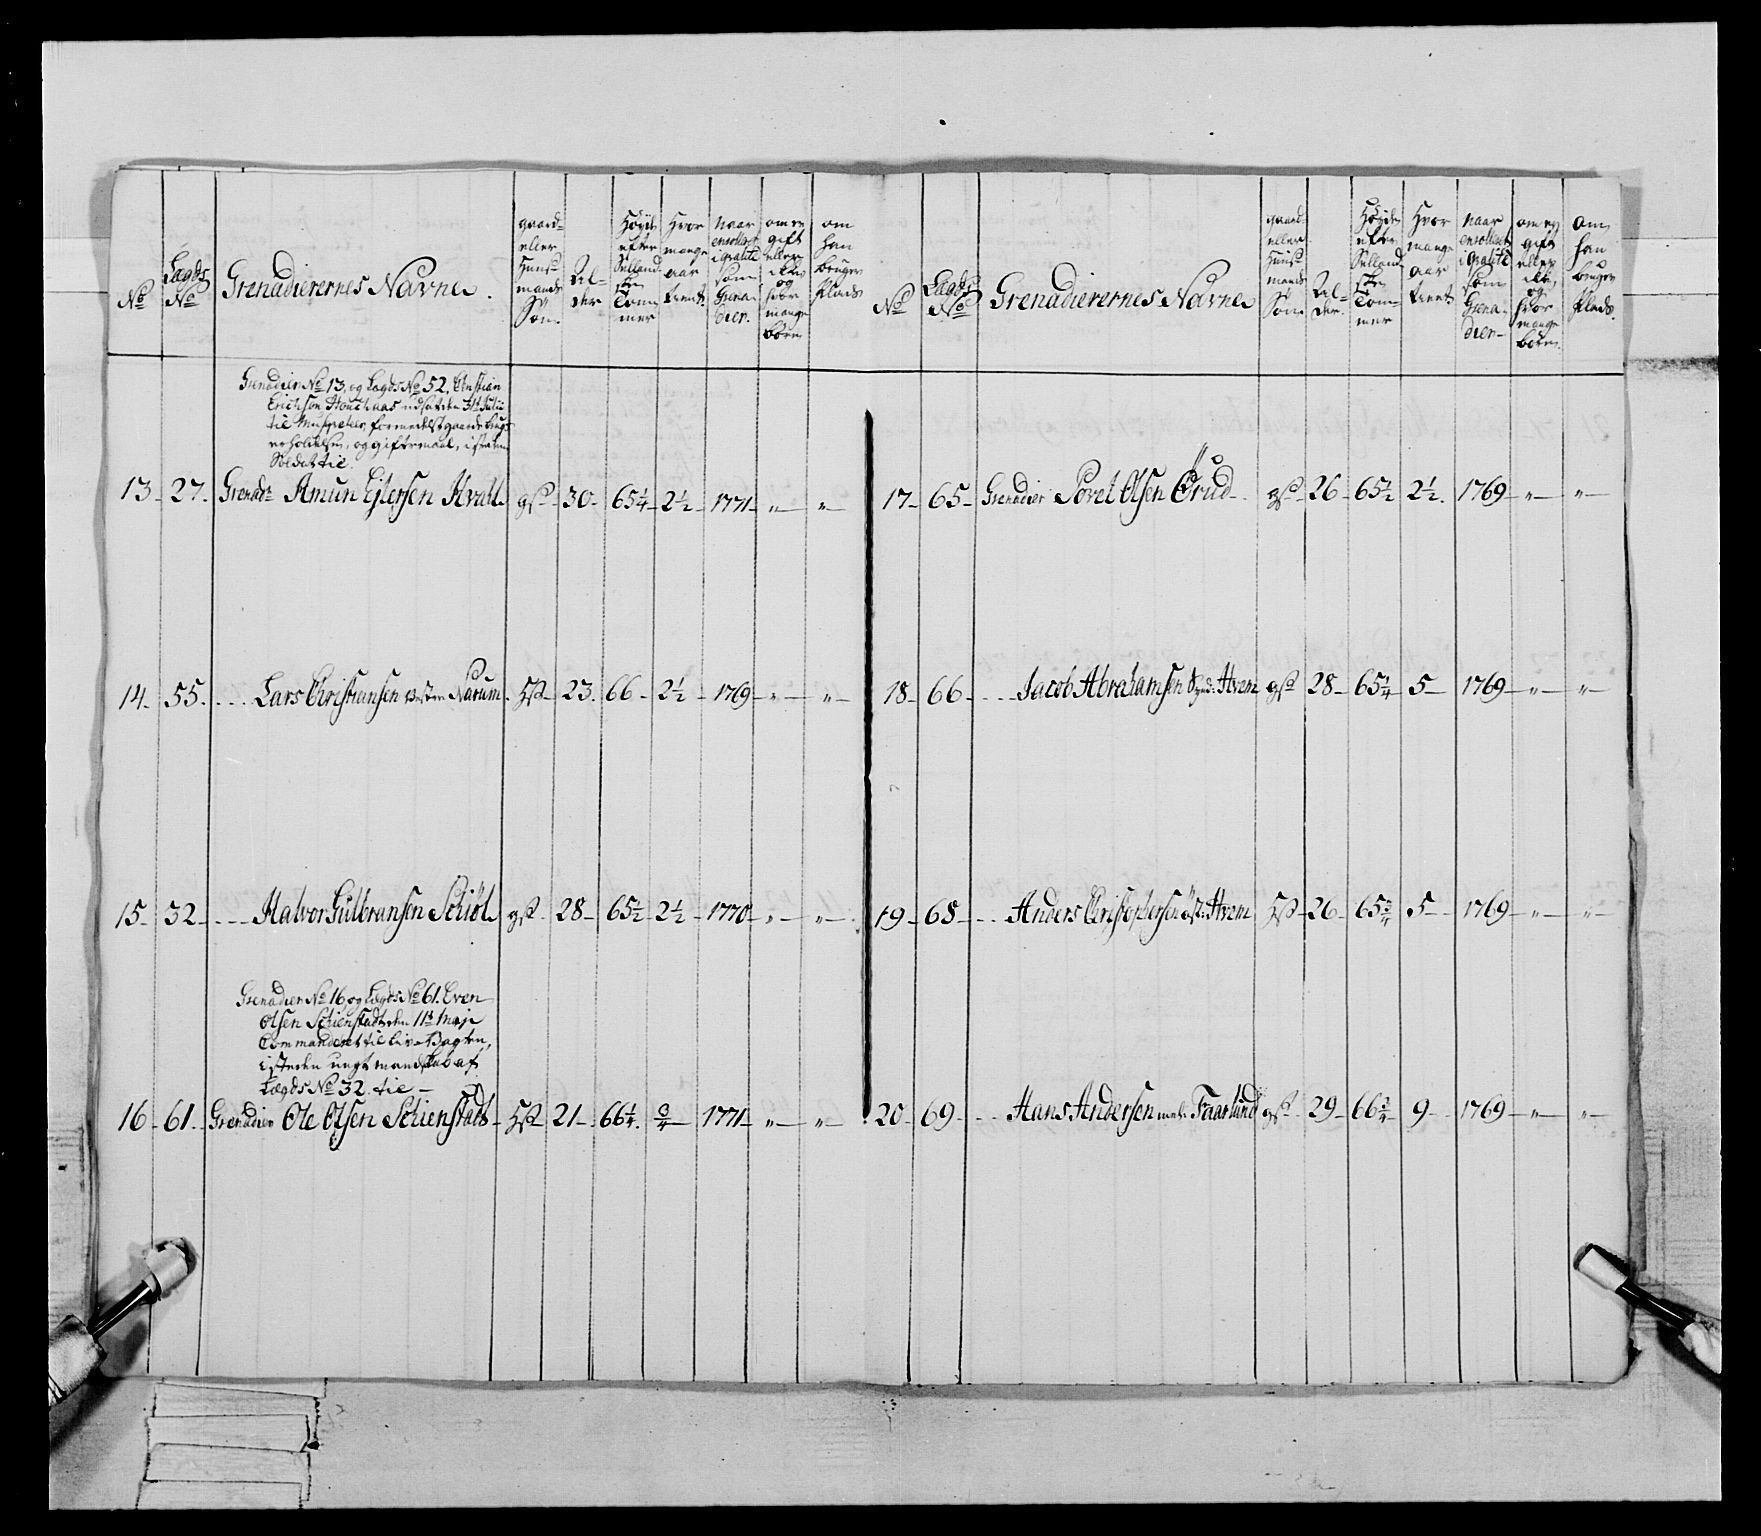 No
Lægds No
Grenadierernes Navne.
gaard- eller Huus- mands Søn.
Al- der
Høyde efter Sellandske Tommer
Hvor mange aar tient.
naar enrollert i qvalité som Grena- dier.
om er gift eller ikke og hvor mange børn
om han bruger Plads
Grenadier No 13. og Lægds No 52. Christian
Erichson
til Musqveteer, formedelst gaards brugs
erholdelse, og giftermaal, i steden
Soldat til.
13. 27. Grenadr Amun Ejlersen Kvahl gS 30. 65 1/4 2 1/2 1771 " "
14. 55. .... Lars Christiansen vesten Narum. HS 23. 66 2 1/2 1769 " "
15. 32. .... Halvor Gulbransen Schiøl gS. 28 65 1/2 2 1/2 1770 " "
Grenadier No 16 og Lægds No 61. Even
Olsen Schienstad den 11te Maji
Commanderet til Live Vagten,
isteden ungt mandskab af
Lægds No 32. til
16 61. Grenadier Ole Olsen Schienstad HS 21 66 1/4. 3/4 1771 " "
No
Lægds No
Grenadierernes Navne
gaard- eller Huus- mands Søn.
Al- der.
Høyde efter Sellandske Tom- mer
Hvor mange aar tient
naar enrollert i qvalité som Grena- dier
om er gift eller ikke, og hvor mange børn.
Om han bruger Plads.
17 65 Grenadier Povel Olsen Ørud gS 26 65 1/2 2 1/2. 1769 " "
18 66 ... Jacob Abrahamsen Hvem gS 28 65 1/4 5 1769 " "
19 68 ... Anders Christophersen øst: Hvem HS 26 65 3/4 5 1769 " "
20 69 ... Hans Andersen mel: Faarlund gS 29 66 3/4 9 1769 " "